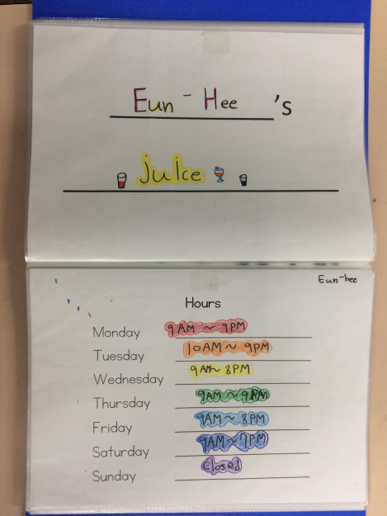 Eun-Hee's
juice
Eun-hee
Hours
Monday 9AM ~ 9PM
Tuesday 10AM ~ 9PM
Wednesday 9AM~ 8PM
Thursday 9AM~9PM
Friday 9AM~8PM
Saturday 9AM~7PM
Sunday closed